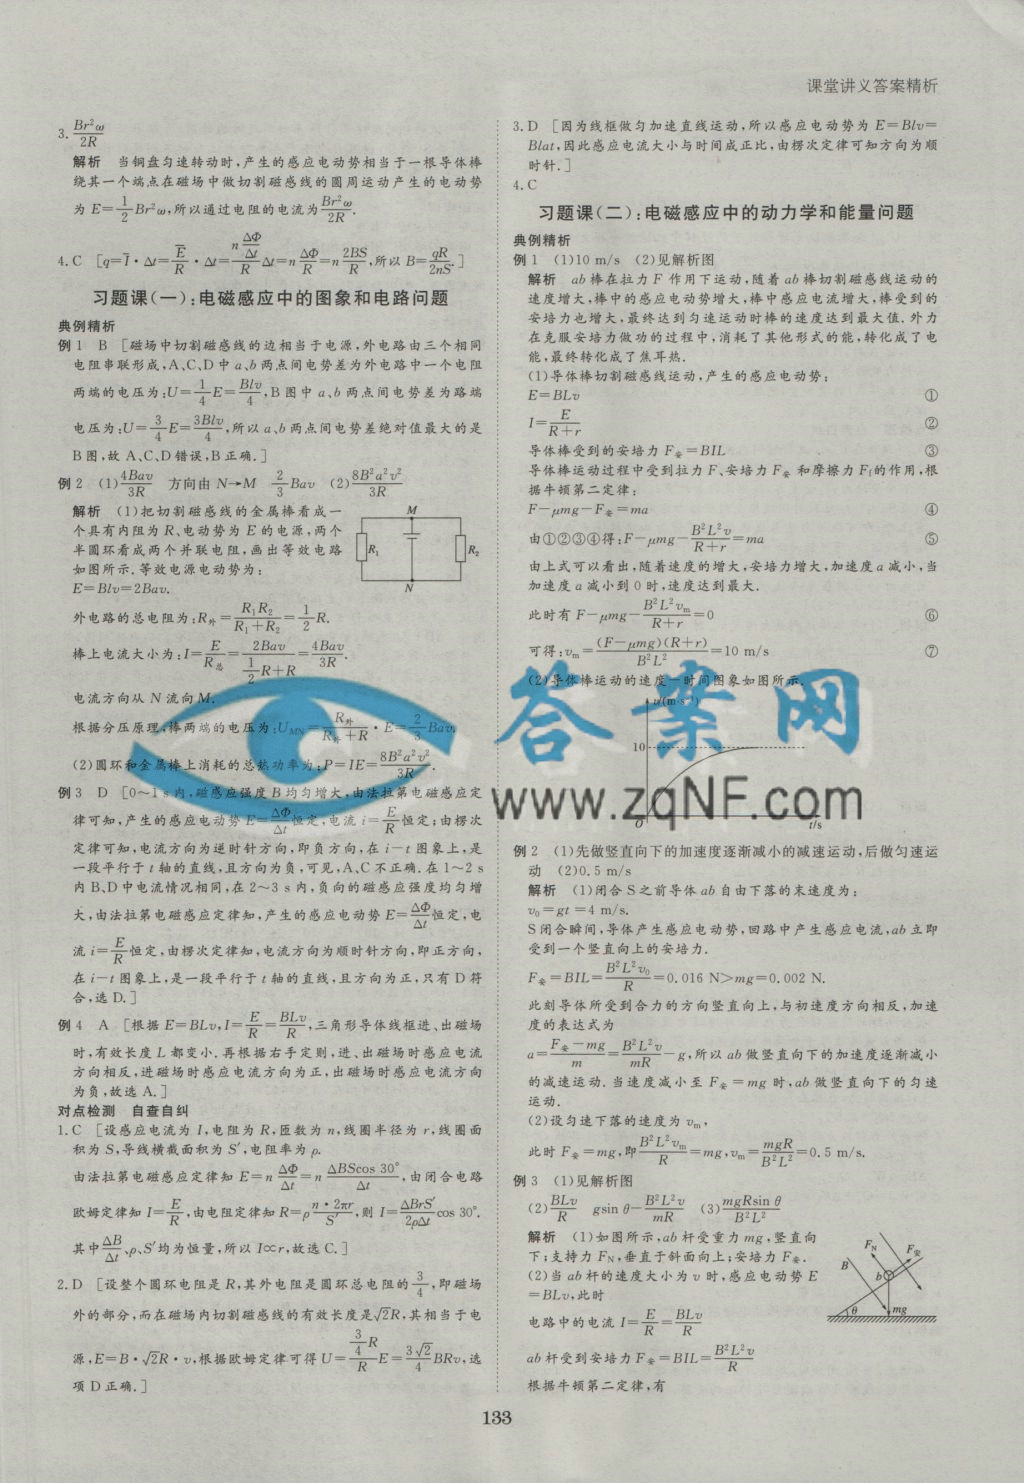 课堂讲义答案精析
3. Br²ω/2R
解析 当铜盘匀速转动时,产生的感应电动势相当于一根导体棒
绕其一个端点在磁场中做切割磁感线的圆周运动产生的电动势
为 E=1/2 Br²ω,所以通过电阻的电流为Br²ω/2R.
4. C [q=I̅·Δt=E̅/R·Δt=(nΔΦ/Δt)/R Δt=nΔΦ/R=n2BS/R,所以 B=qR/2nS.]
习题课(一):电磁感应中的图象和电路问题
典例精析
例 1 B [磁场中切割磁感线的边相当于电源,外电路由三个相同
电阻串联形成,A、C、D 中 a、b 两点间电势差为外电路中一个电阻
两端的电压为:U=1/4 E=Blv/4,B 图中 a、b 两点间电势差为路端
电压为:U=3/4 E=3Blv/4,所以 a、b 两点间电势差绝对值最大的是
B 图,故 A、C、D 错误,B 正确.]
例 2 (1)4Bav/3R 方向由 N→M 2/3 Bav (2)8B²a²v²/3R
解析 (1)把切割磁感线的金属棒看成一
个具有内阻为 R、电动势为 E 的电源,两个
半圆环看成两个并联电阻,画出等效电路
如图所示.等效电源电动势为:
E=Blv=2Bav.
M
R₁
R₂
N
外电路的总电阻为:R外=R₁R₂/(R₁+R₂)=1/2 R.
棒上电流大小为:I=E/R总=2Bav/(1/2 R+R)=4Bav/3R.
电流方向从 N 流向 M.
根据分压原理,棒两端的电压为:U_MN=R外/(R外+R)·E=2/3 Bav.
(2)圆环和金属棒上消耗的总热功率为:P=IE=8B²a²v²/3R.
例 3 D [0~1 s 内,磁感应强度 B 均匀增大,由法拉第电磁感应定
律可知,产生的感应电动势 E=ΔΦ/Δt恒定,电流 i=E/R恒定;由楞次
定律可知,电流方向为逆时针方向,即负方向,在 i-t 图象上,是
一段平行于 t 轴的直线,且方向为负,可见,A、C 不正确.在 1~2 s
内 B、D 中电流情况相同,在 2~3 s 内,负向的磁感应强度均匀增
大,由法拉第电磁感应定律知,产生的感应电动势 E=ΔΦ/Δt恒定,电
流 i=E/R恒定,由楞次定律知,电流方向为顺时针方向,即正方向,
在 i-t 图象上,是一段平行于 t 轴的直线,且方向为正,只有 D 符
合,选 D.]
例 4 A [根据 E=BLv,I=E/R=BLv/R,三角形导体线框进、出磁场
时,有效长度 L 都变小.再根据右手定则,进、出磁场时感应电流
方向相反,进磁场时感应电流方向为正,出磁场时感应电流方向
为负,故选 A.]
对点检测 自查自纠
1. C [设感应电流为 I,电阻为 R,匝数为 n,线圈半径为 r,线圈面
积为 S,导线横截面积为 S′,电阻率为 ρ.
由法拉第电磁感应定律知 E=nΔΦ/Δt=nΔBScos 30°/Δt,由闭合电路
欧姆定律知 I=E/R,由电阻定律知 R=ρn·2πr/S′,则 I=ΔBrS′/2ρΔt cos 30°.
其中ΔB/Δt、ρ、S′均为恒量,所以 I∝r,故选 C.]
2. D [设整个圆环电阻是 R,其外电阻是圆环总电阻的3/4,即磁场
外的部分,而在磁场内切割磁感线的有效长度是√2R,其相当于电
源,E=B·√2R·v,根据欧姆定律可得 U=(3/4 R)/R E=3√2/4 BRv,选
项 D 正确.]
3. D [因为线框做匀加速直线运动,所以感应电动势为 E=Blv=
Blat,因此感应电流大小与时间成正比,由楞次定律可知方向为顺
时针.]
4. C
习题课(二):电磁感应中的动力学和能量问题
典例精析
例 1 (1)10 m/s (2)见解析图
解析 ab 棒在拉力 F 作用下运动,随着 ab 棒切割磁感线运动的
速度增大,棒中的感应电动势增大,棒中感应电流增大,棒受到的
安培力也增大,最终达到匀速运动时棒的速度达到最大值.外力
在克服安培力做功的过程中,消耗了其他形式的能,转化成了电
能,最终转化成了焦耳热.
(1)导体棒切割磁感线运动,产生的感应电动势:
E=BLv ①
I=E/(R+r) ②
导体棒受到的安培力 F安=BIL ③
导体棒运动过程中受到拉力 F、安培力 F安 和摩擦力 Ff的作用,根
据牛顿第二定律:
F-μmg-F安=ma ④
由①②③④得:F-μmg-B²L²v/(R+r)=ma ⑤
由上式可以看出,随着速度的增大,安培力增大,加速度 a 减小,当
加速度 a 减小到 0 时,速度达到最大.
此时有 F-μmg-B²L²vm/(R+r)=0 ⑥
可得:vm=(F-μmg)(R+r)/B²L²=10 m/s ⑦
(2)导体棒运动的速度—时间图象如图所示.
v/(m·s⁻¹)
10
O
t/s
答案网
www.zqNF.com
例 2 (1)先做竖直向下的加速度逐渐减小的减速运动,后做匀速运
动 (2)0.5 m/s
解析 (1)闭合 S 之前导体 ab 自由下落的末速度为:
v₀=gt=4 m/s.
S 闭合瞬间,导体产生感应电动势,回路中产生感应电流,ab 立即
受到一个竖直向上的安培力.
F安=BIL=B²L²v₀/R=0.016 N>mg=0.002 N.
此刻导体所受到合力的方向竖直向上,与初速度方向相反,加速
度的表达式为
a=(F安-mg)/m=B²L²v/mR-g,所以 ab 做竖直向下的加速度逐渐减小
的减速运动.当速度减小至 F安=mg 时,ab 做竖直向下的匀速
运动.
(2)设匀速下落的速度为 vm,
此时 F安=mg,即B²L²vm/R=mg,vm=mgR/B²L²=0.5 m/s.
例 3 (1)见解析图
(2)BLv/R gsin θ-B²L²v/mR (3)mgRsin θ/B²L²
解析 (1)如图所示,ab 杆受重力 mg,竖直向
下;支持力 FN,垂直于斜面向上;安培力 F安.
(2)当 ab 杆的速度大小为 v 时,感应电动势 E
=BLv,此时
电路中的电流 I=E/R=BLv/R
B
FN
F安
b
mg
θ
ab 杆受到安培力 F安=BIL=B²L²v/R
根据牛顿第二定律,有
133